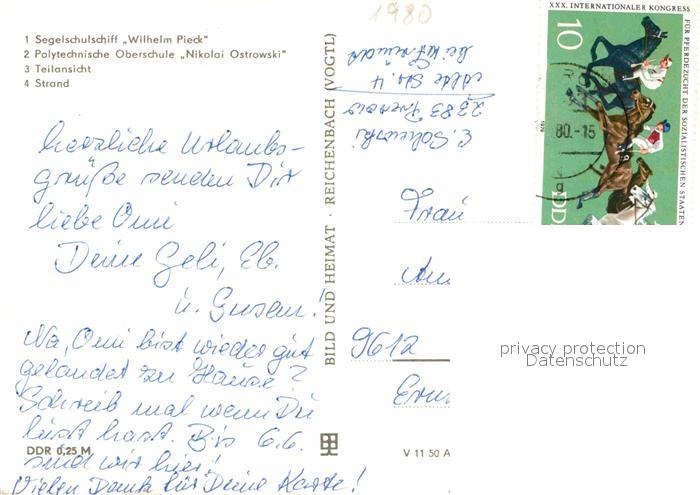 1 Segelschulschiff „Wilhelm Pieck"
2 Polytechnische Oberschule „Nikolai Ostrowski"
3 Teilansicht
4 Strand
herzliche Urlaubs-
grüße senden Dir
liebe Omi
Deine Geli, Eb.
u.
Na, Omi bist wieder gut
gelandet zu Hause?
Schreib mal wenn Du
lust hast. Bis 6.6.
sind wir hier!
Vielen Dank für Deine Karte!
DDR 0,25 M
BILD UND HEIMAT · REICHENBACH (VOGTL)
V 11 50 A
1980
2383 Prerow
Str. 4
bei
Frau
9612
XXX. INTERNATIONALER KONGRESS
FÜR PFERDEZUCHT DER SOZIALISTISCHEN STAATEN
10
1979
80.-15
g
DD
privacy protection
Datenschutz